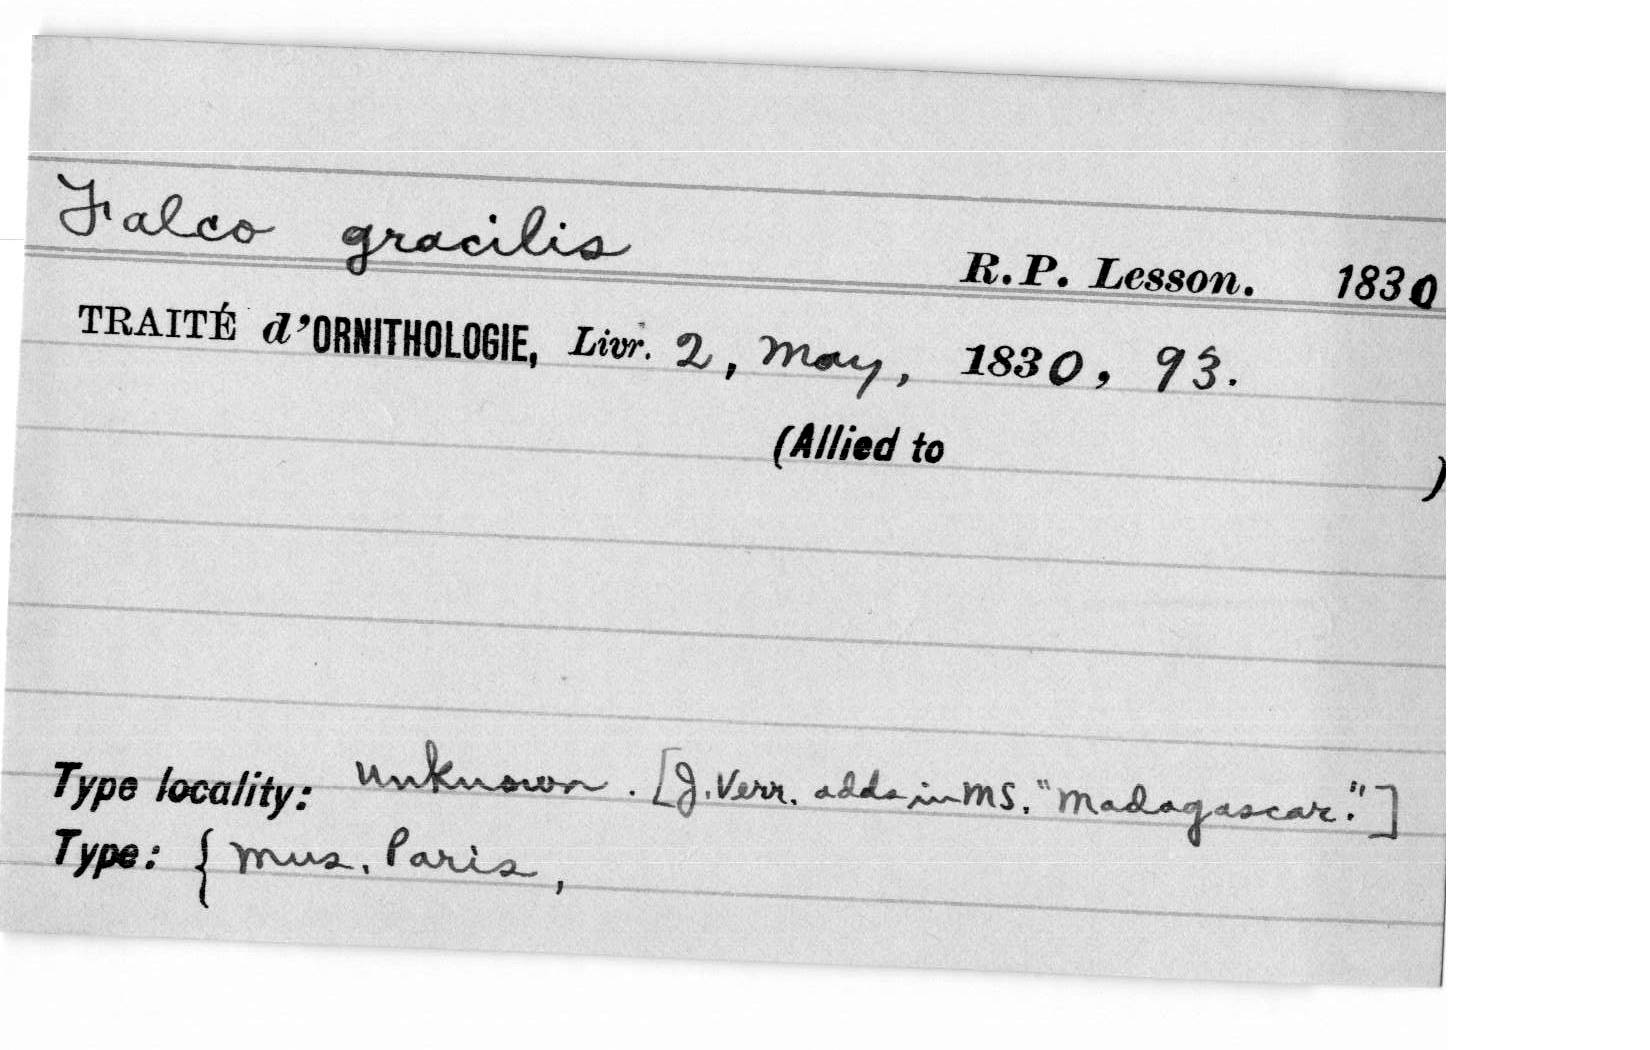 Falco gracilis R.P. Lesson. 1830
TRAITÉ d'ORNITHOLOGIE, Livr. 2, May, 1830, 93.
(Allied to )
Type locality: unknown. [J. Verr. adds in MS. "Madagascar."]
Type: { Mus. Paris,